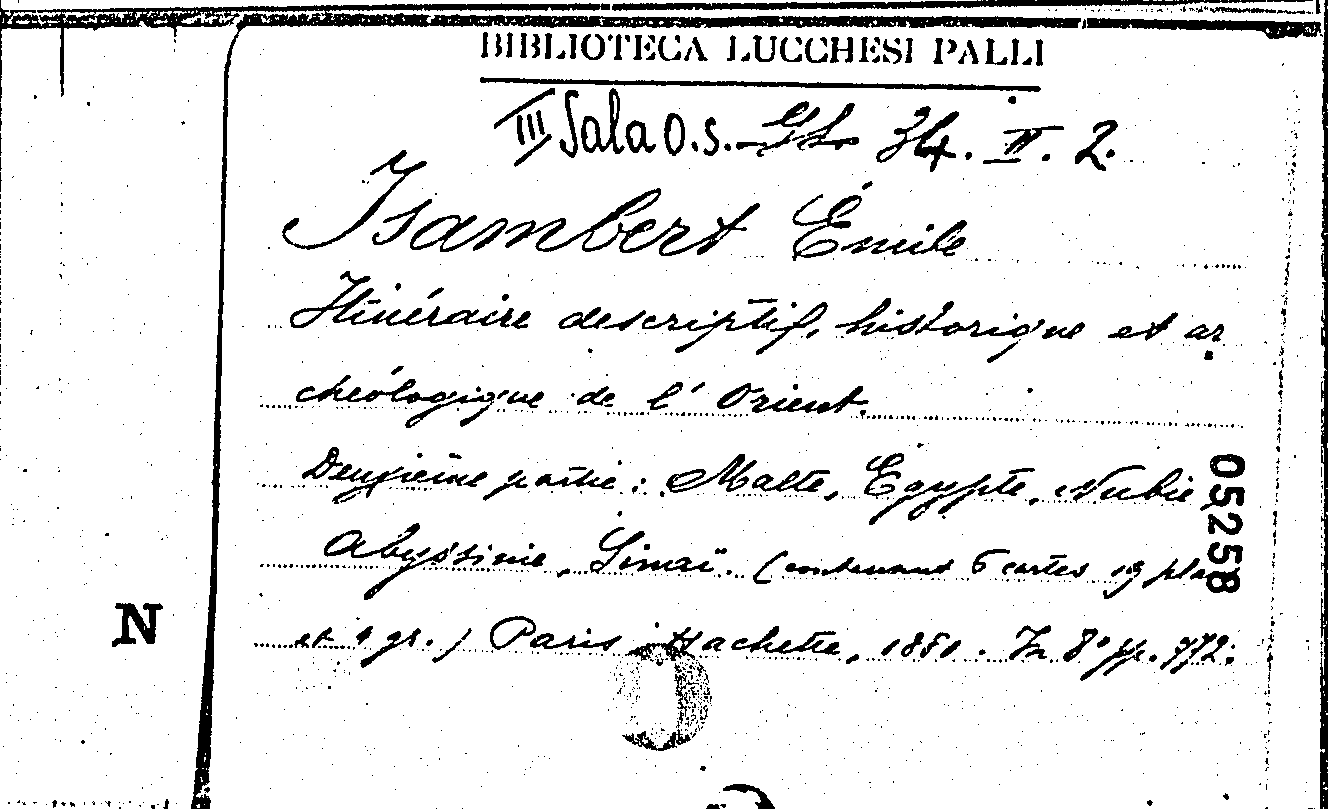 BIBLIOTECA LUCCHESI PALLI
III Sala O.S. 34. II. 2.
Isambert Émile
Itinéraire descriptif, historique et ar
chéologique de l' Orient.
Deuxième partie: Malte, Égypte, Nubie,
Abyssinie, Sinaï. (contenant 6 cartes 19 plans
et 9 gr.) Paris Hachette, 1881. In 8° pp. 772.
05258
N